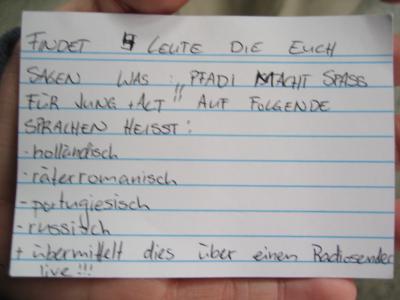 FINDET 4 LEUTE DIE EUCH
SAGEN WAS: „PFADI MACHT SPASS
FÜR JUNG + ALT" AUF FOLGENDE
SPRACHEN HEISST:
- holländisch
- räterromanisch
- portugiesisch
- russisch
+ übermittelt dies über einen Radiosender
live!!!